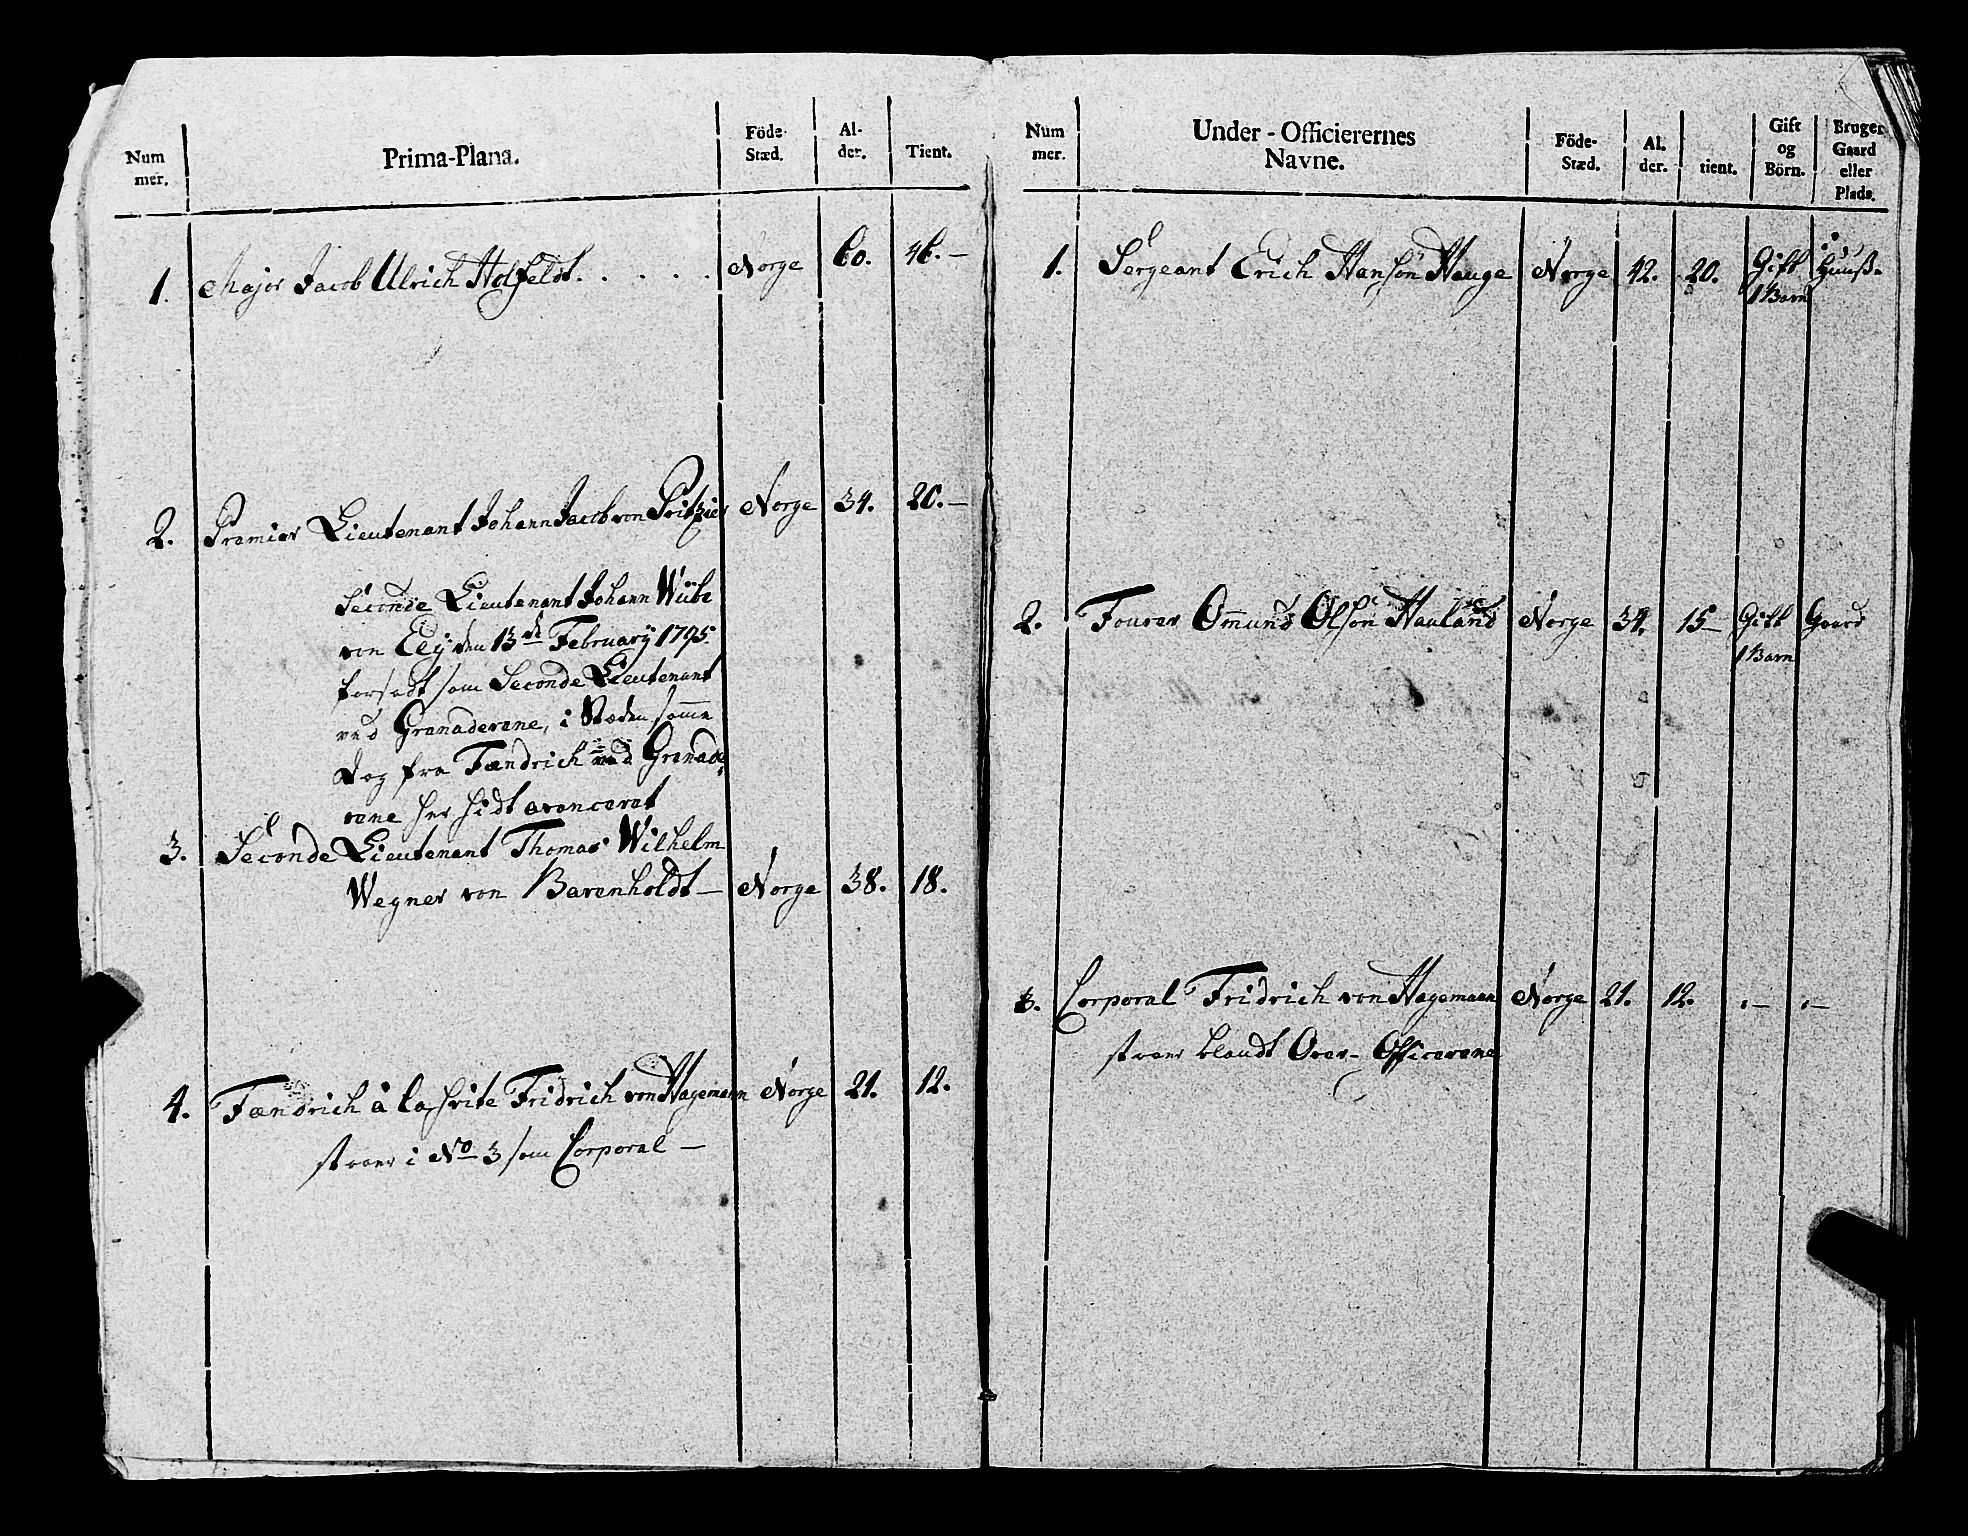 Num
mer.
Prima-Plana.
Föde-
Stæd.
Al-
der.
Tient.
1. Major Jacob Ulrich Holfeldt. . . . . Norge 60. 46. –
2. Premier Lieutenant Johann Jacob von Pritzier Norge 34. 20. –
Seconde Lieutenant Johann Wübe
von Eey den 13de February 1795.
forsadt som Seconde Lieutenant
ved Granaderene, i Stæden somme
Dag fra Fændrich ved Granade-
rene her hidt avanceret
3. Seconde Lieutenant Thomas Wilhelm
Wegner von Barenholdt – Norge 38. 18.
4. Fændrich à la Svite Fridrich von Hagemann Norge 21. 12.
staaer i No 3 som Corporal –
Num
mer.
Under-Officierernes
Navne.
Föde-
Stæd.
Al.
der.
tient.
Gift
og
Börn.
Bruger
Gaard
eller
Plads.
1. Sergeant Erich Hansön Hauge Norge 42. 20. Gift Huuß-
1 Barn
2. Fourer Ommund Olsön Hauland Norge 34. 15 – Gift Gaard
1 Barn
3. Corporal Fridrich von Hagemann Norge 21. 12. . – . –
staaer blandt Over-Officerene